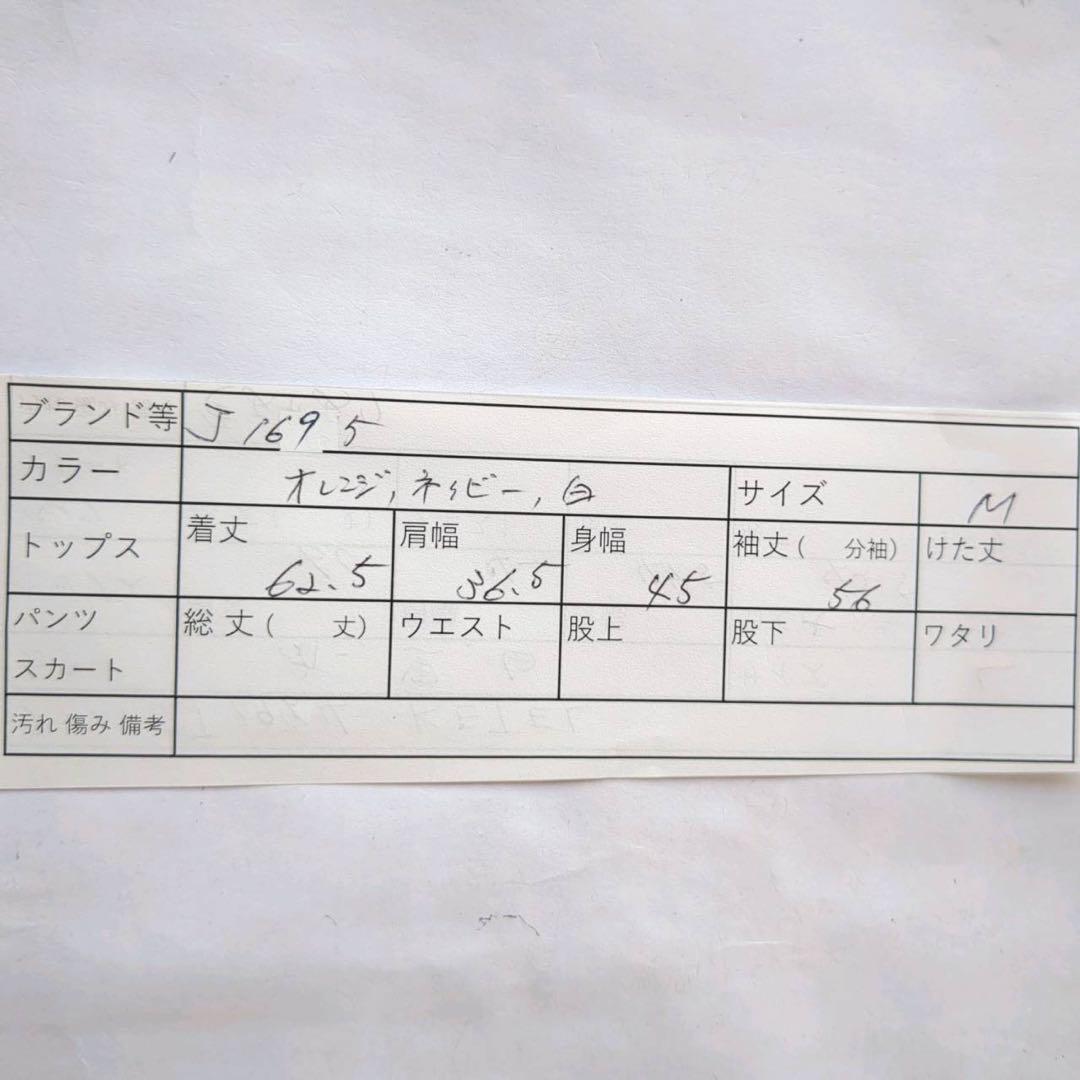 ブランド等 J1695
カラー オレンジ,ネイビー,白 サイズ M
トップス 着丈 62.5 肩幅 36.5 身幅 45 袖丈( 分袖) 56 けた丈
パンツ スカート 総丈( 丈) ウエスト 股上 股下 ワタリ
汚れ 傷み 備考